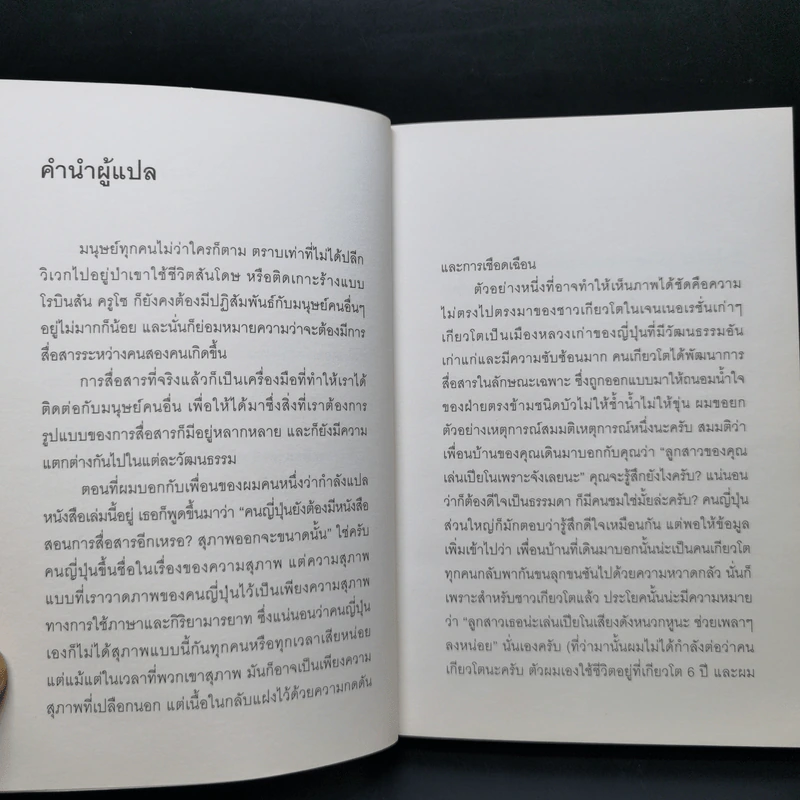 คำนำผู้แปล
มนุษย์ทุกคนไม่ว่าใครก็ตาม ตราบเท่าที่ไม่ได้ปลีก
วิเวกไปอยู่ป่าเขาใช้ชีวิตสันโดษ หรือติดเกาะร้างแบบ
โรบินสัน ครูโซ ก็ยังคงต้องมีปฏิสัมพันธ์กับมนุษย์คนอื่นๆ
อยู่ไม่มากก็น้อย และนั่นก็ย่อมหมายความว่าจะต้องมีการ
สื่อสารระหว่างคนสองคนเกิดขึ้น
การสื่อสารที่จริงแล้วก็เป็นเครื่องมือที่ทำให้เราได้
ติดต่อกับมนุษย์คนอื่น เพื่อให้ได้มาซึ่งสิ่งที่เราต้องการ
รูปแบบของการสื่อสารก็มีอยู่หลากหลาย และก็ยังมีความ
แตกต่างกันไปในแต่ละวัฒนธรรม
ตอนที่ผมบอกกับเพื่อนของผมคนหนึ่งว่ากำลังแปล
หนังสือเล่มนี้อยู่ เธอก็พูดขึ้นมาว่า “คนญี่ปุ่นยังต้องมีหนังสือ
สอนการสื่อสารอีกเหรอ? สุภาพออกจะขนาดนั้น” ใช่ครับ
คนญี่ปุ่นขึ้นชื่อในเรื่องของความสุภาพ แต่ความสุภาพ
แบบที่เราวาดภาพของคนญี่ปุ่นไว้เป็นเพียงความสุภาพ
ทางการใช้ภาษาและกิริยามารยาท ซึ่งแน่นอนว่าคนญี่ปุ่น
เองก็ไม่ได้สุภาพแบบนี้กันทุกคนหรือทุกเวลาเสียหน่อย
แต่แม้แต่ในเวลาที่พวกเขาสุภาพ มันก็อาจเป็นเพียงความ
สุภาพที่เปลือกนอก แต่เนื้อในกลับแฝงไว้ด้วยความกดดัน
และการเชือดเฉือน
ตัวอย่างหนึ่งที่อาจทำให้เห็นภาพได้ชัดคือความ
ไม่ตรงไปตรงมาของชาวเกียวโตในเจนเนอเรชั่นเก่าๆ
เกียวโตเป็นเมืองหลวงเก่าของญี่ปุ่นที่มีวัฒนธรรมอัน
เก่าแก่และมีความซับซ้อนมาก คนเกียวโตได้พัฒนาการ
สื่อสารในลักษณะเฉพาะ ซึ่งถูกออกแบบมาให้ถนอมน้ำใจ
ของฝ่ายตรงข้ามชนิดบัวไม่ให้ช้ำน้ำไม่ให้ขุ่น ผมขอยก
ตัวอย่างเหตุการณ์สมมติเหตุการณ์หนึ่งนะครับ สมมติว่า
เพื่อนบ้านของคุณเดินมาบอกกับคุณว่า “ลูกสาวของคุณ
เล่นเปียโนเพราะจังเลยนะ” คุณจะรู้สึกยังไงครับ? แน่นอน
ว่าก็ต้องดีใจเป็นธรรมดา ก็มีคนชมใช่มั้ยล่ะครับ? คนญี่ปุ่น
ส่วนใหญ่ก็มักตอบว่ารู้สึกดีใจเหมือนกัน แต่พอให้ข้อมูล
เพิ่มเข้าไปว่า เพื่อนบ้านที่เดินมาบอกนั้นน่ะเป็นคนเกียวโต
ทุกคนกลับพากันขนลุกขนชันไปด้วยความหวาดกลัว นั่นก็
เพราะสำหรับชาวเกียวโตแล้ว ประโยคนั้นน่ะมีความหมาย
ว่า “ลูกสาวเธอน่ะเล่นเปียโนเสียงดังหนวกหูนะ ช่วยเพลาๆ
ลงหน่อย” นั่นเองครับ (ที่ว่ามานั้นผมไม่ได้กำลังต่อว่าคน
เกียวโตนะครับ ตัวผมเองใช้ชีวิตอยู่ที่เกียวโต 6 ปี และผม